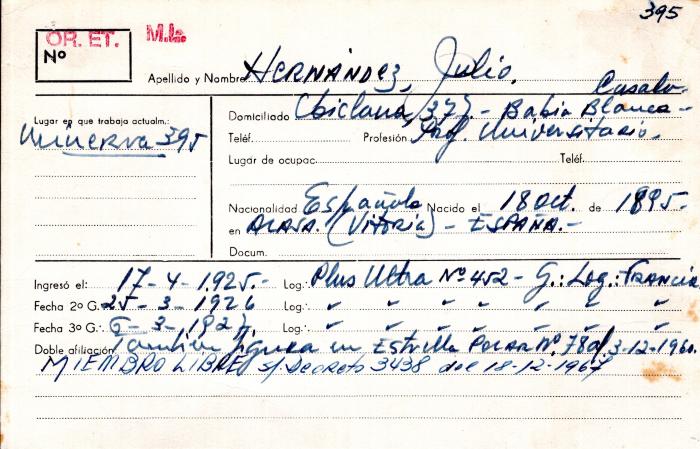 395
OR. ET.
M.L.
Nº
Apellido y Nombre HERNÁNDEZ, Julio.
Casado-
Lugar en que trabaja actualm.:
Minerva 395
Domiciliado Chiclana, 377.- Bahia Blanca-
Teléf. Profesión Prof. Universitario.
Lugar de ocupac. Teléf.
Nacionalidad Española Nacido el 18 Oct. de 1895-
en ALAVA. (VITORIA) - ESPAÑA.-
Docum.
Ingresó el: 17-4-1.925.- Log.·. Plus Ultra Nº 452 - G.: Log.: FRANCIA
Fecha 2º G.·. 25-3-1926 Log.·. " " " " " "
Fecha 3º G.·. 6-3-1927. Log.·. " " " " " "
Doble afiliación También figura en Estrella POLAR Nº. 78 al 3-12-1960.
MIEMBRO LIBRE s/ Decreto 3438 del 18-12-1967